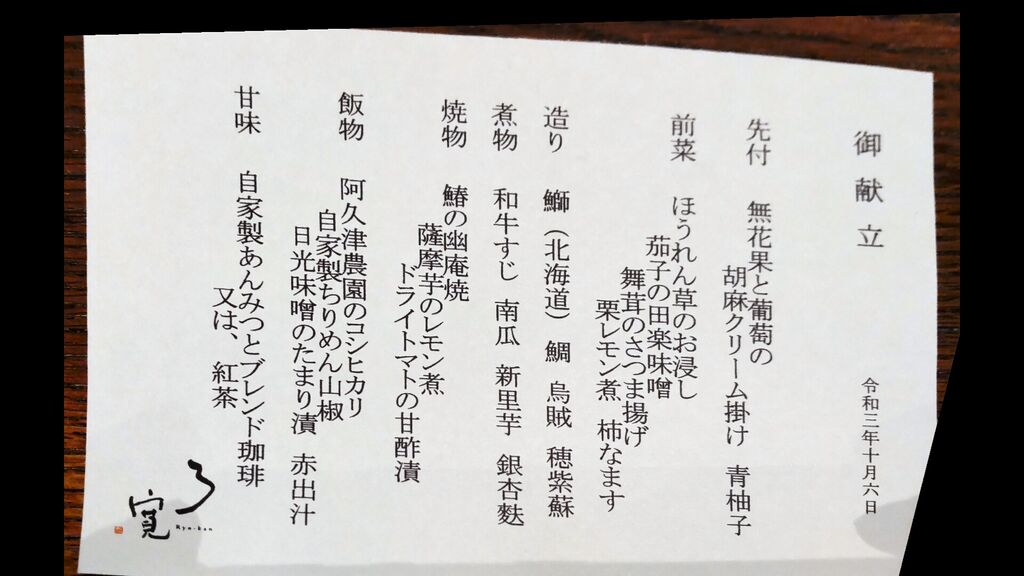 御献立
令和三年十月六日
先付 無花果と葡萄の
胡麻クリーム掛け 青柚子
前菜 ほうれん草のお浸し
茄子の田楽味噌
舞茸のさつま揚げ
栗レモン煮 柿なます
造り 鰤(北海道) 鯛 烏賊 穂紫蘇
煮物 和牛すじ 南瓜 新里芋 銀杏麩
焼物 鰆の幽庵焼
薩摩芋のレモン煮
ドライトマトの甘酢漬
飯物 阿久津農園のコシヒカリ
自家製ちりめん山椒
日光味噌のたまり漬 赤出汁
甘味 自家製あんみつとブレンド珈琲
又は、紅茶
了寛
Ryo-kan